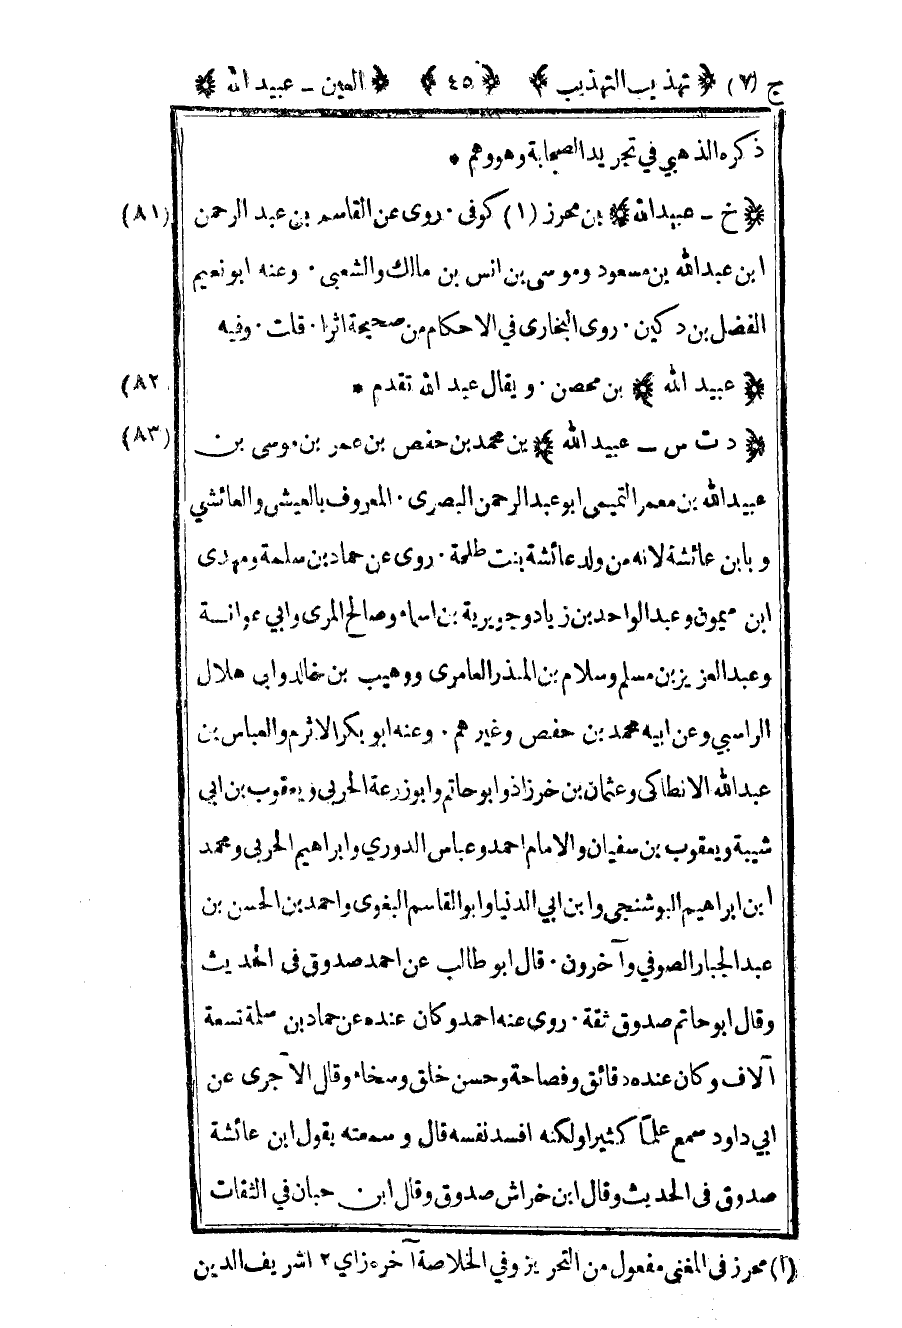 ج (٧) ﴿ تهذيب التهذيب ﴾ ﴿ ٤٥ ﴾ ﴿ العين ـ عبيد الله ﴾
ذكره الذهبي في تجريد الصحابة وهو وهم *
﴿ خ ـ عبيدالله ﴾ بن محرز (١) كوفى · روى عن القاسم بن عبد الرحمن (٨١)
ابن عبدالله بن مسعود وموسى بن انس بن مالك والشعبي · وعنه ابو نعيم
الفضل بن دكين · روى البخارى في الاحكام من صحيحة اثرا · قلت · وفيه
﴿ عبيد الله ﴾ بن محصن · ويقال عبد الله تقدم * ٨٢)
﴿ د ت س ـ عبيدالله ﴾ بن محمد بن حفص بن عمر بن موسى بن (٨٣)
عبيدالله بن معمر التميمى ابو عبدالرحمن البصرى · المعروف بالعيشى والعائشي
وبابن عائشة لانه من ولد عائشة بنت طلحة · روى عن حماد بن سلمة ومهدى
ابن ميمون وعبدالواحد بن زياد وجويرية بن اسماء وصالح المرى وابي عوانة
وعبدالعزيز بن مسلم وسلام بن المنذر العامرى ووهيب بن خالد وابى هلال
الراسبي وعن ابيه محمد بن حفص وغيرهم · وعنه ابو بكر الاثرم والعباس بن
عبدالله الانطاكى وعثمان بن خرزاذ وابو حاتم وابو زرعة الحربي ويعقوب بن ابي
شيبة ويعقوب بن سفيان والامام احمد وعباس الدوري وابراهيم الحربي ومحمد
ابن ابراهيم البوشنجى وابن ابي الدنيا وابو القاسم البغوى واحمد بن الحسن بن
عبدالجبار الصوفي وآخرون · قال ابو طالب عن احمد صدوق فى الحديث
وقال ابو حاتم صدوق ثقة · روى عنه احمد وكان عنده عن حماد بن سلمة تسعة
آلاف وكان عنده دقائق وفصاحة وحسن خلق وسخاء وقال الآجرى عن
ابي داود سمع علماً كثيرا ولكنه افسد نفسه قال وسمعته يقول ابن عائشة
صدوق فى الحديث وقال ابن خراش صدوق وقال ابن حبان في الثقات
(١) محرز فى المغنى مفعول من التحريز وفي الخلاصة آخره زاي ١٢ شريف الدين